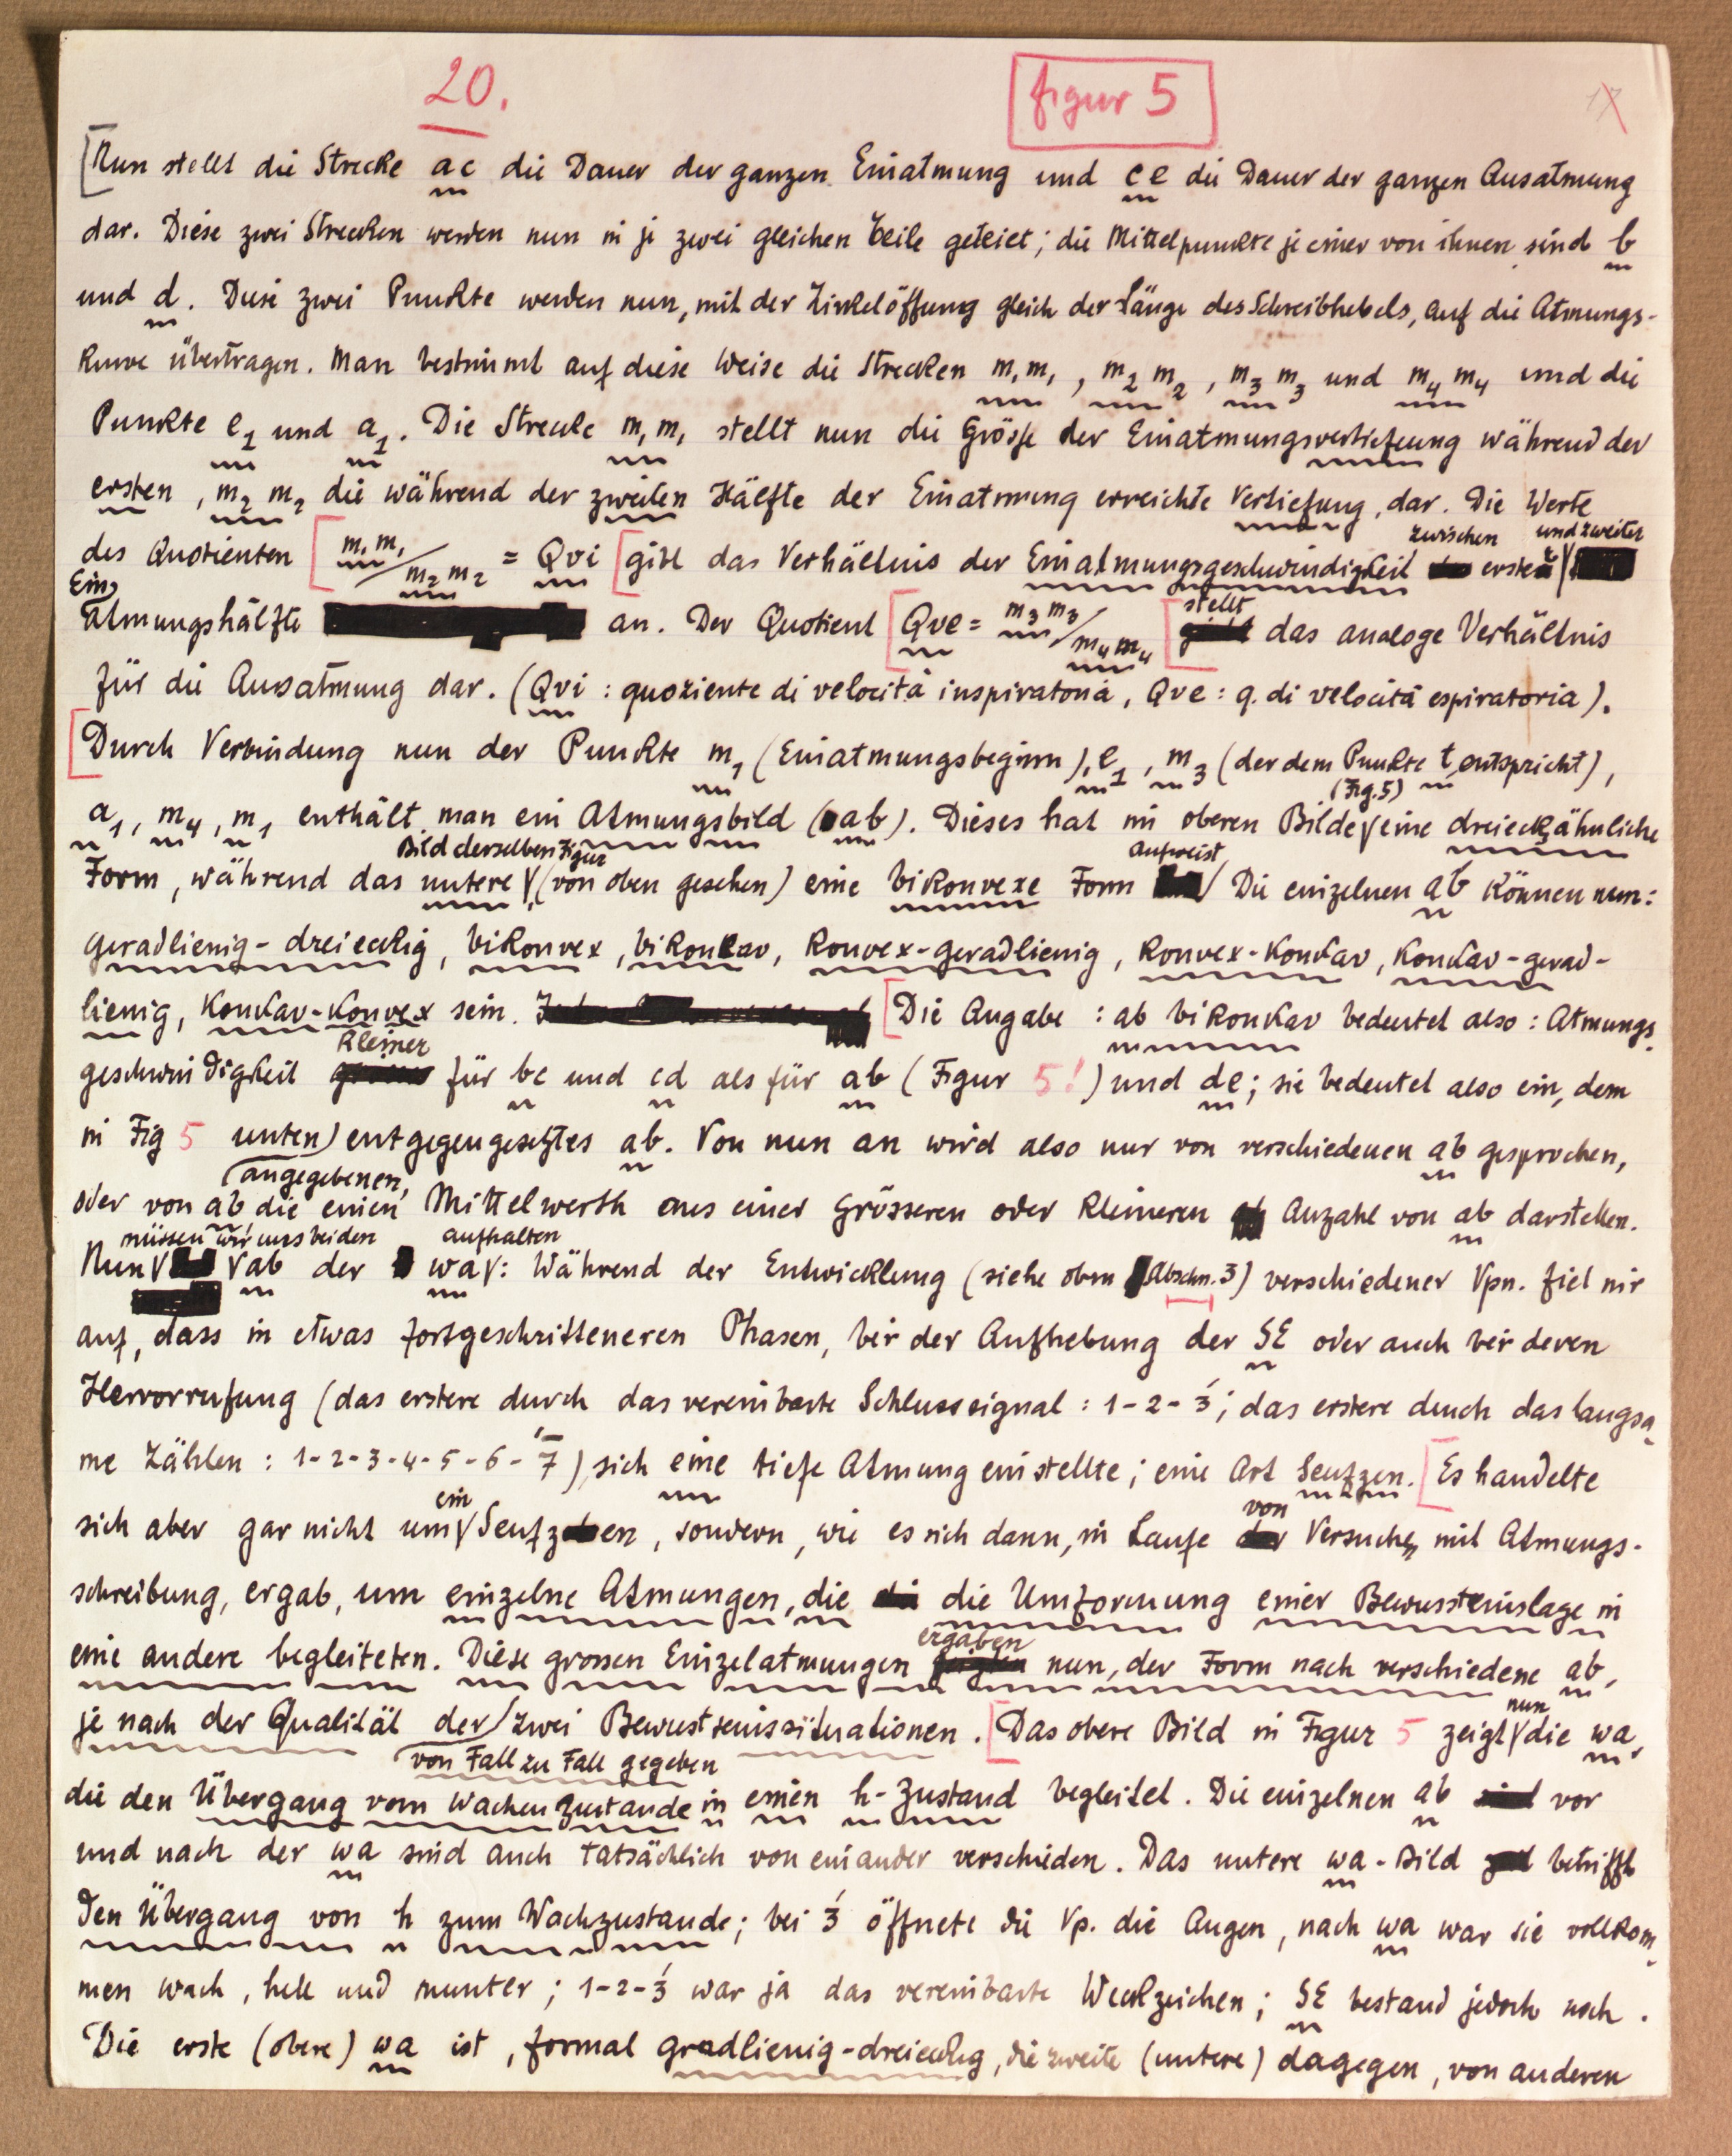 20.
figur 5
Nun stellt die Strecke ac die Dauer der ganzen Einatmung und ce die Dauer der ganzen Ausatmung
dar. Diese zwei Strecken werden nun in je zwei gleichen Teile geteiet; die Mittelpunkte je einer von ihnen sind b
und d. Diese zwei Punkte werden nun, mit der Zirkelöffung gleich der Länge des Schreibhebels, auf die Atmungs-
kurve übertragen. Man bestimmt auf diese Weise die Strecken m₁m₁, m₂m₂, m₃m₃ und m₄m₄ und die
Punkte e₁ und a₁. Die Strecke m₁m₁ stellt nun die Grösse der Einatmungsvertiefung während der
ersten, m₂m₂ die während der zweiten Hälfte der Einatmung erreichte Vertiefung, dar. Die Werte
zwischen und zweiter
des Quotienten m₁m₁/m₂m₂ = Qvi gibt das Verhältnis der Einatmungsgeschwindigkeit erster
Ein
atmungshälfte an. Der Quotient Qve = m₃m₃/m₄m₄ stellt das analoge Verhältnis
für die Ausatmung dar. (Qvi : quoziente di velocità inspiratoria, Qve : q. di velocità espiratoria).
Durch Verbindung nun der Punkte m₁ (Einatmungsbeginn), e₁, m₃ (der dem Punkte t entspricht),
(Fig. 5)
a₁, m₄, m₁ enthält man ein Atmungsbild (ab). Dieses hat im oberen Bilde eine dreieckähnliche
Bild derselben Figur aufweist
Form, während das untere (von oben gesehen) eine bikonvexe Form Die einzelnen ab können nun:
geradlienig-dreieckig, bikonvex, bikonkav, konvex-geradlienig, konvex-konkav, konkav-gerad-
lienig, konkav-konvex sein. Die Angabe : ab bikonkav bedeutet also : Atmungs-
kleiner
geschwindigkeit für bc und cd als für ab (Figur 5!) und de; sie bedeutet also ein, dem
in Fig 5 unten entgegengesetztes ab. Von nun an wird also nur von verschiedenen ab gesprochen,
angegebenen,
oder von ab die einen Mittelwerth aus einer Grösseren oder kleineren Anzahl von ab darstellen.
müssen wir uns bei den aufhalten
Nun ab der wa: Während der Entwicklung (siehe oben Abschn. 3) verschiedener Vpn. fiel mir
auf, dass in etwas fortgeschritteneren Phasen, bei der Aufhebung der SE oder auch bei deren
Hervorrufung (das erstere durch das vereinbarte Schlussignal : 1-2-3́; das erstere durch das langsa-
me Zählen : 1-2-3-4-5-6-7́) sich eine tiefe Atmung einstellte; eine Art Seufzen. Es handelte
ein von
sich aber gar nicht um Seufzen, sondern, wie es sich dann, in Laufe Versuchen mit Atmungs-
schreibung, ergab, um einzelne Atmungen, die die Umformung einer Bewussteinslage in
ergaben
eine andere begleiteten. Diese grossen Einzelatmungen nun, der Form nach verschiedene ab,
nun
je nach der Qualität der zwei Bewustseinssituationen. Das obere Bild in Figur 5 zeigt die wa,
von Fall zu Fall gegeben
die den Übergang vom Wachen Zustande in einen h-Zustand begleitet. Die einzelnen ab vor
und nach der wa sind auch tatsächlich von einander verschieden. Das untere wa-Bild betrifft
den Übergang von h zum Wachzustande; bei 3́ öffnete die Vp. die Augen, nach wa war sie vollkom-
men wach, hell und munter; 1-2-3́ war ja das vereinbarte Weckzeichen; SE bestand jedoch noch.
Die erste (obere) wa ist, formal gradlienig-dreieckig, die zweite (untere) dagegen, von anderen